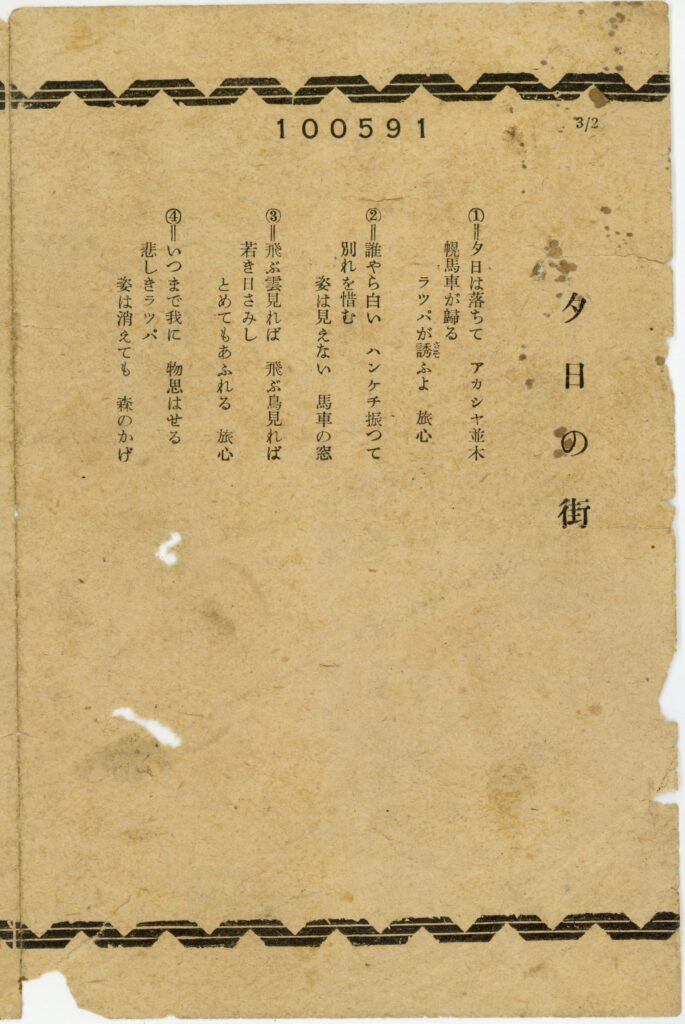 100591
3/2
夕日の街
①＝夕日は落ちて　アカシヤ並木
幌馬車が歸る
ラツパが誘ふよ　旅心
さそ
②＝誰やら白い　ハンケチ振つて
別れを惜む
姿は見えない　馬車の窓
③＝飛ぶ雲見れば　飛ぶ鳥見れば
若き日さみし
とめてもあふれる　旅心
④＝いつまで我に　物思はせる
悲しきラツパ
姿は消えても　森のかげ